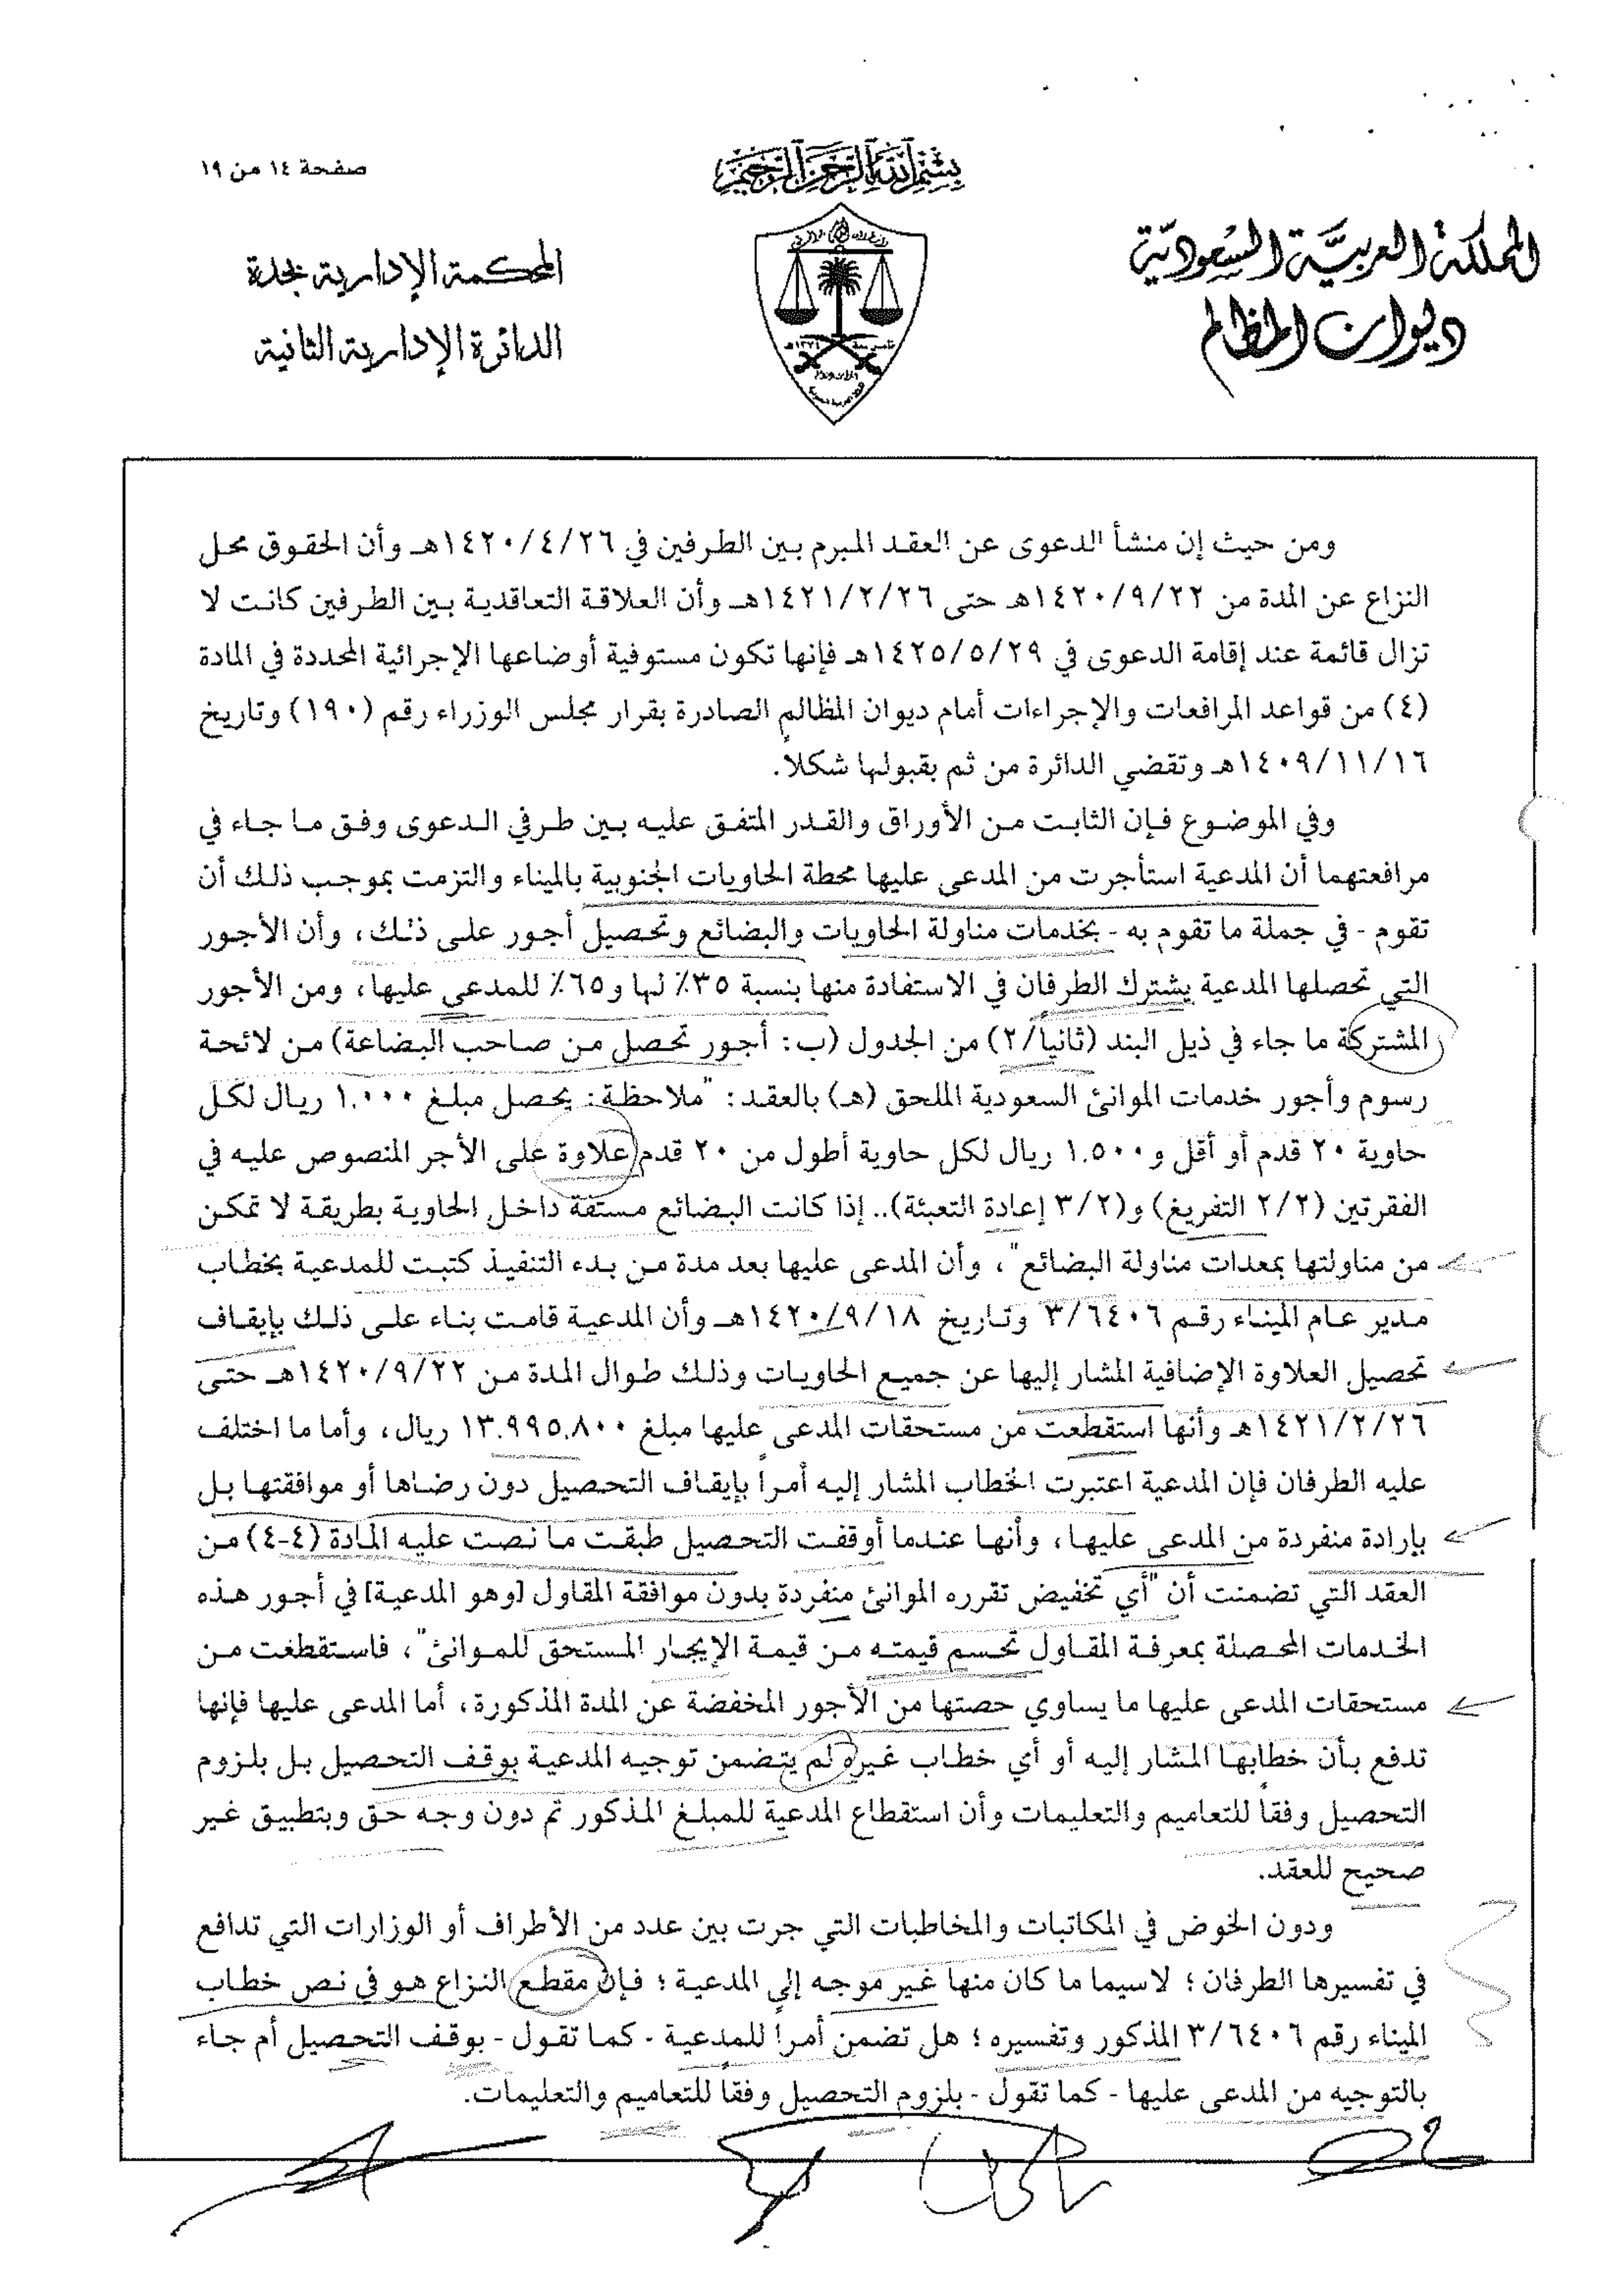 صفحة ١٤ من ١٩
بسم الله الرحمن الرحيم
المملكة العربية السعودية
ديوان المظالم
المحكمة الإدارية بجدة
الدائرة الإدارية الثانية
ومن حيث إن منشأ الدعوى عن العقد المبرم بين الطرفين في ١٤٢٠/٤/٢٦هـ وأن الحقوق محل
النزاع عن المدة من ١٤٢٠/٩/٢٢هـ حتى ١٤٢١/٢/٢٦هـ وأن العلاقة التعاقدية بين الطرفين كانت لا
تزال قائمة عند إقامة الدعوى في ١٤٢٥/٥/٢٩هـ فإنها تكون مستوفية أوضاعها الإجرائية المحددة في المادة
(٤) من قواعد المرافعات والإجراءات أمام ديوان المظالم الصادرة بقرار مجلس الوزراء رقم (١٩٠) وتاريخ
١٤٠٩/١١/١٦هـ وتقضي الدائرة من ثم بقبولها شكلاً.
وفي الموضوع فإن الثابت من الأوراق والقدر المتفق عليه بين طرفي الدعوى وفق ما جاء في
مرافعتهما أن المدعية استأجرت من المدعى عليها محطة الحاويات الجنوبية بالميناء والتزمت بموجب ذلك أن
تقوم - في جملة ما تقوم به - بخدمات مناولة الحاويات والبضائع وتحصيل أجور على ذلك، وأن الأجور
التي تحصلها المدعية يشترك الطرفان في الاستفادة منها بنسبة ٣٥٪ لها و٦٥٪ للمدعى عليها، ومن الأجور
المشتركة ما جاء في ذيل البند (ثانياً/٢) من الجدول (ب: أجور تحصل من صاحب البضاعة) من لائحة
رسوم وأجور خدمات الموانئ السعودية الملحق (هـ) بالعقد: "ملاحظة: يحصل مبلغ ١.٠٠٠ ريال لكل
حاوية ٢٠ قدم أو أقل و١.٥٠٠ ريال لكل حاوية أطول من ٢٠ قدم علاوة على الأجر المنصوص عليه في
الفقرتين (٢/٢ التفريغ) و(٣/٢ إعادة التعبئة).. إذا كانت البضائع مستفة داخل الحاوية بطريقة لا تمكن
من مناولتها بمعدات مناولة البضائع"، وأن المدعى عليها بعد مدة من بدء التنفيذ كتبت للمدعية بخطاب
مدير عام الميناء رقم ٣/٦٤٠٦ وتاريخ ١٤٢٠/٩/١٨هـ وأن المدعية قامت بناء على ذلك بإيقاف
تحصيل العلاوة الإضافية المشار إليها عن جميع الحاويات وذلك طوال المدة من ١٤٢٠/٩/٢٢هـ حتى
١٤٢١/٢/٢٦هـ وأنها استقطعت من مستحقات المدعى عليها مبلغ ١٣.٩٩٥.٨٠٠ ريال، وأما ما اختلف
عليه الطرفان فإن المدعية اعتبرت الخطاب المشار إليه أمراً بإيقاف التحصيل دون رضاها أو موافقتها بل
بإرادة منفردة من المدعى عليها، وأنها عندما أوقفت التحصيل طبقت ما نصت عليه المادة (٤-٤) من
العقد التي تضمنت أن "أي تخفيض تقرره الموانئ منفردة بدون موافقة المقاول [وهو المدعية] في أجور هذه
الخدمات المحصلة بمعرفة المقاول تحسم قيمته من قيمة الإيجار المستحق للموانئ"، فاستقطعت من
مستحقات المدعى عليها ما يساوي حصتها من الأجور المخفضة عن المدة المذكورة، أما المدعى عليها فإنها
تدفع بأن خطابها المشار إليه أو أي خطاب غيره لم يتضمن توجيه المدعية بوقف التحصيل بل بلزوم
التحصيل وفقاً للتعاميم والتعليمات وأن استقطاع المدعية للمبلغ المذكور تم دون وجه حق وبتطبيق غير
صحيح للعقد.
ودون الخوض في المكاتبات والمخاطبات التي جرت بين عدد من الأطراف أو الوزارات التي تدافع
في تفسيرها الطرفان؛ لاسيما ما كان منها غير موجه إلى المدعية؛ فإن مقطع النزاع هو في نص خطاب
الميناء رقم ٣/٦٤٠٦ المذكور وتفسيره؛ هل تضمن أمراً للمدعية - كما تقول - بوقف التحصيل أم جاء
بالتوجيه من المدعى عليها - كما تقول - بلزوم التحصيل وفقاً للتعاميم والتعليمات.